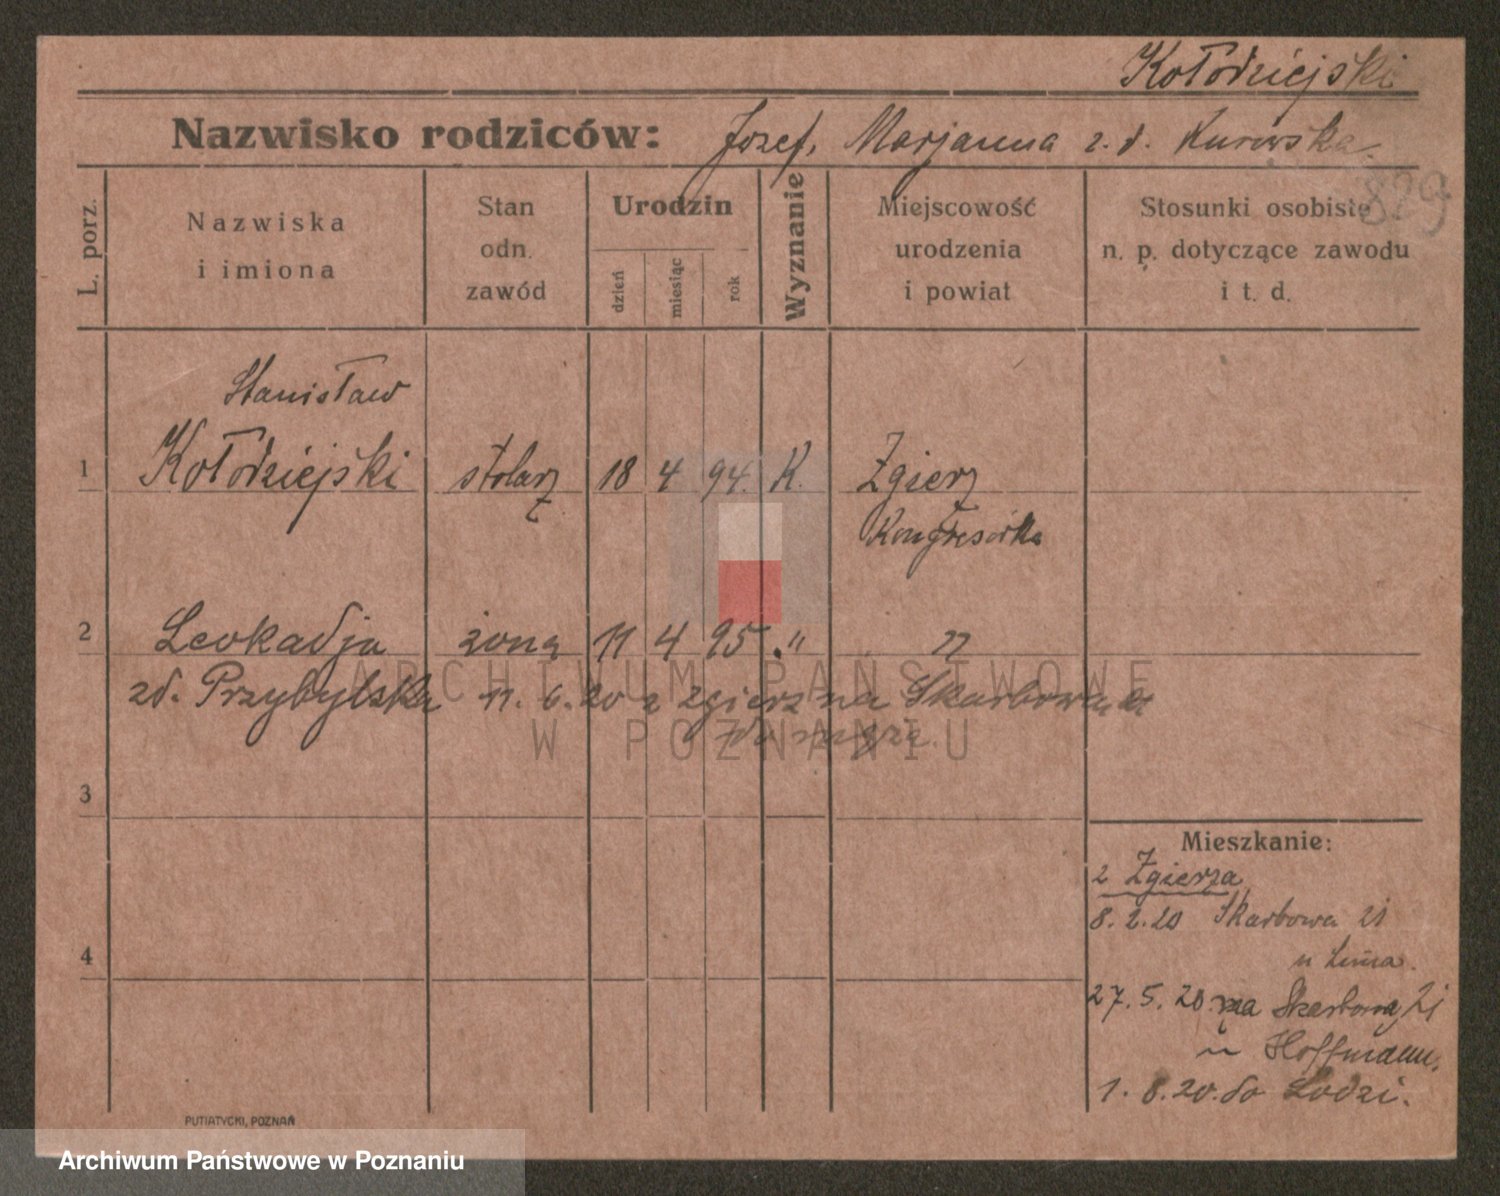 Kołodziejski
Nazwisko rodziców: Jozef, Marjanna z. d. Kurowska.
829
L. porz.
Nazwiska
i imiona
Stan
odn.
zawód
Urodzin
dzień
miesiąc
rok
Wyznanie
Miejscowość
urodzenia
i powiat
Stosunki osobiste
n. p. dotyczące zawodu
i t. d.
Stanisław
1 Kołodziejski stolarz 18 4 94. K. Zgierz
Kongresówka
2 Leokadja żona 11 4 95. " "
zd. Przybylska 11. 6. 20 z Zgierz na Skarbowa 21
do męża.
3
4
Mieszkanie:
z Zgierza
8. 2. 20 Skarbowa 21
u
27. 5. 20. na Skarbowa 21
u Hoffmann.
1. 8. 20. do Lodzi.
PUTIATYCKI, POZNAŃ
ARCHIWUM PAŃSTWOWE
W POZNANIU
Archiwum Państwowe w Poznaniu